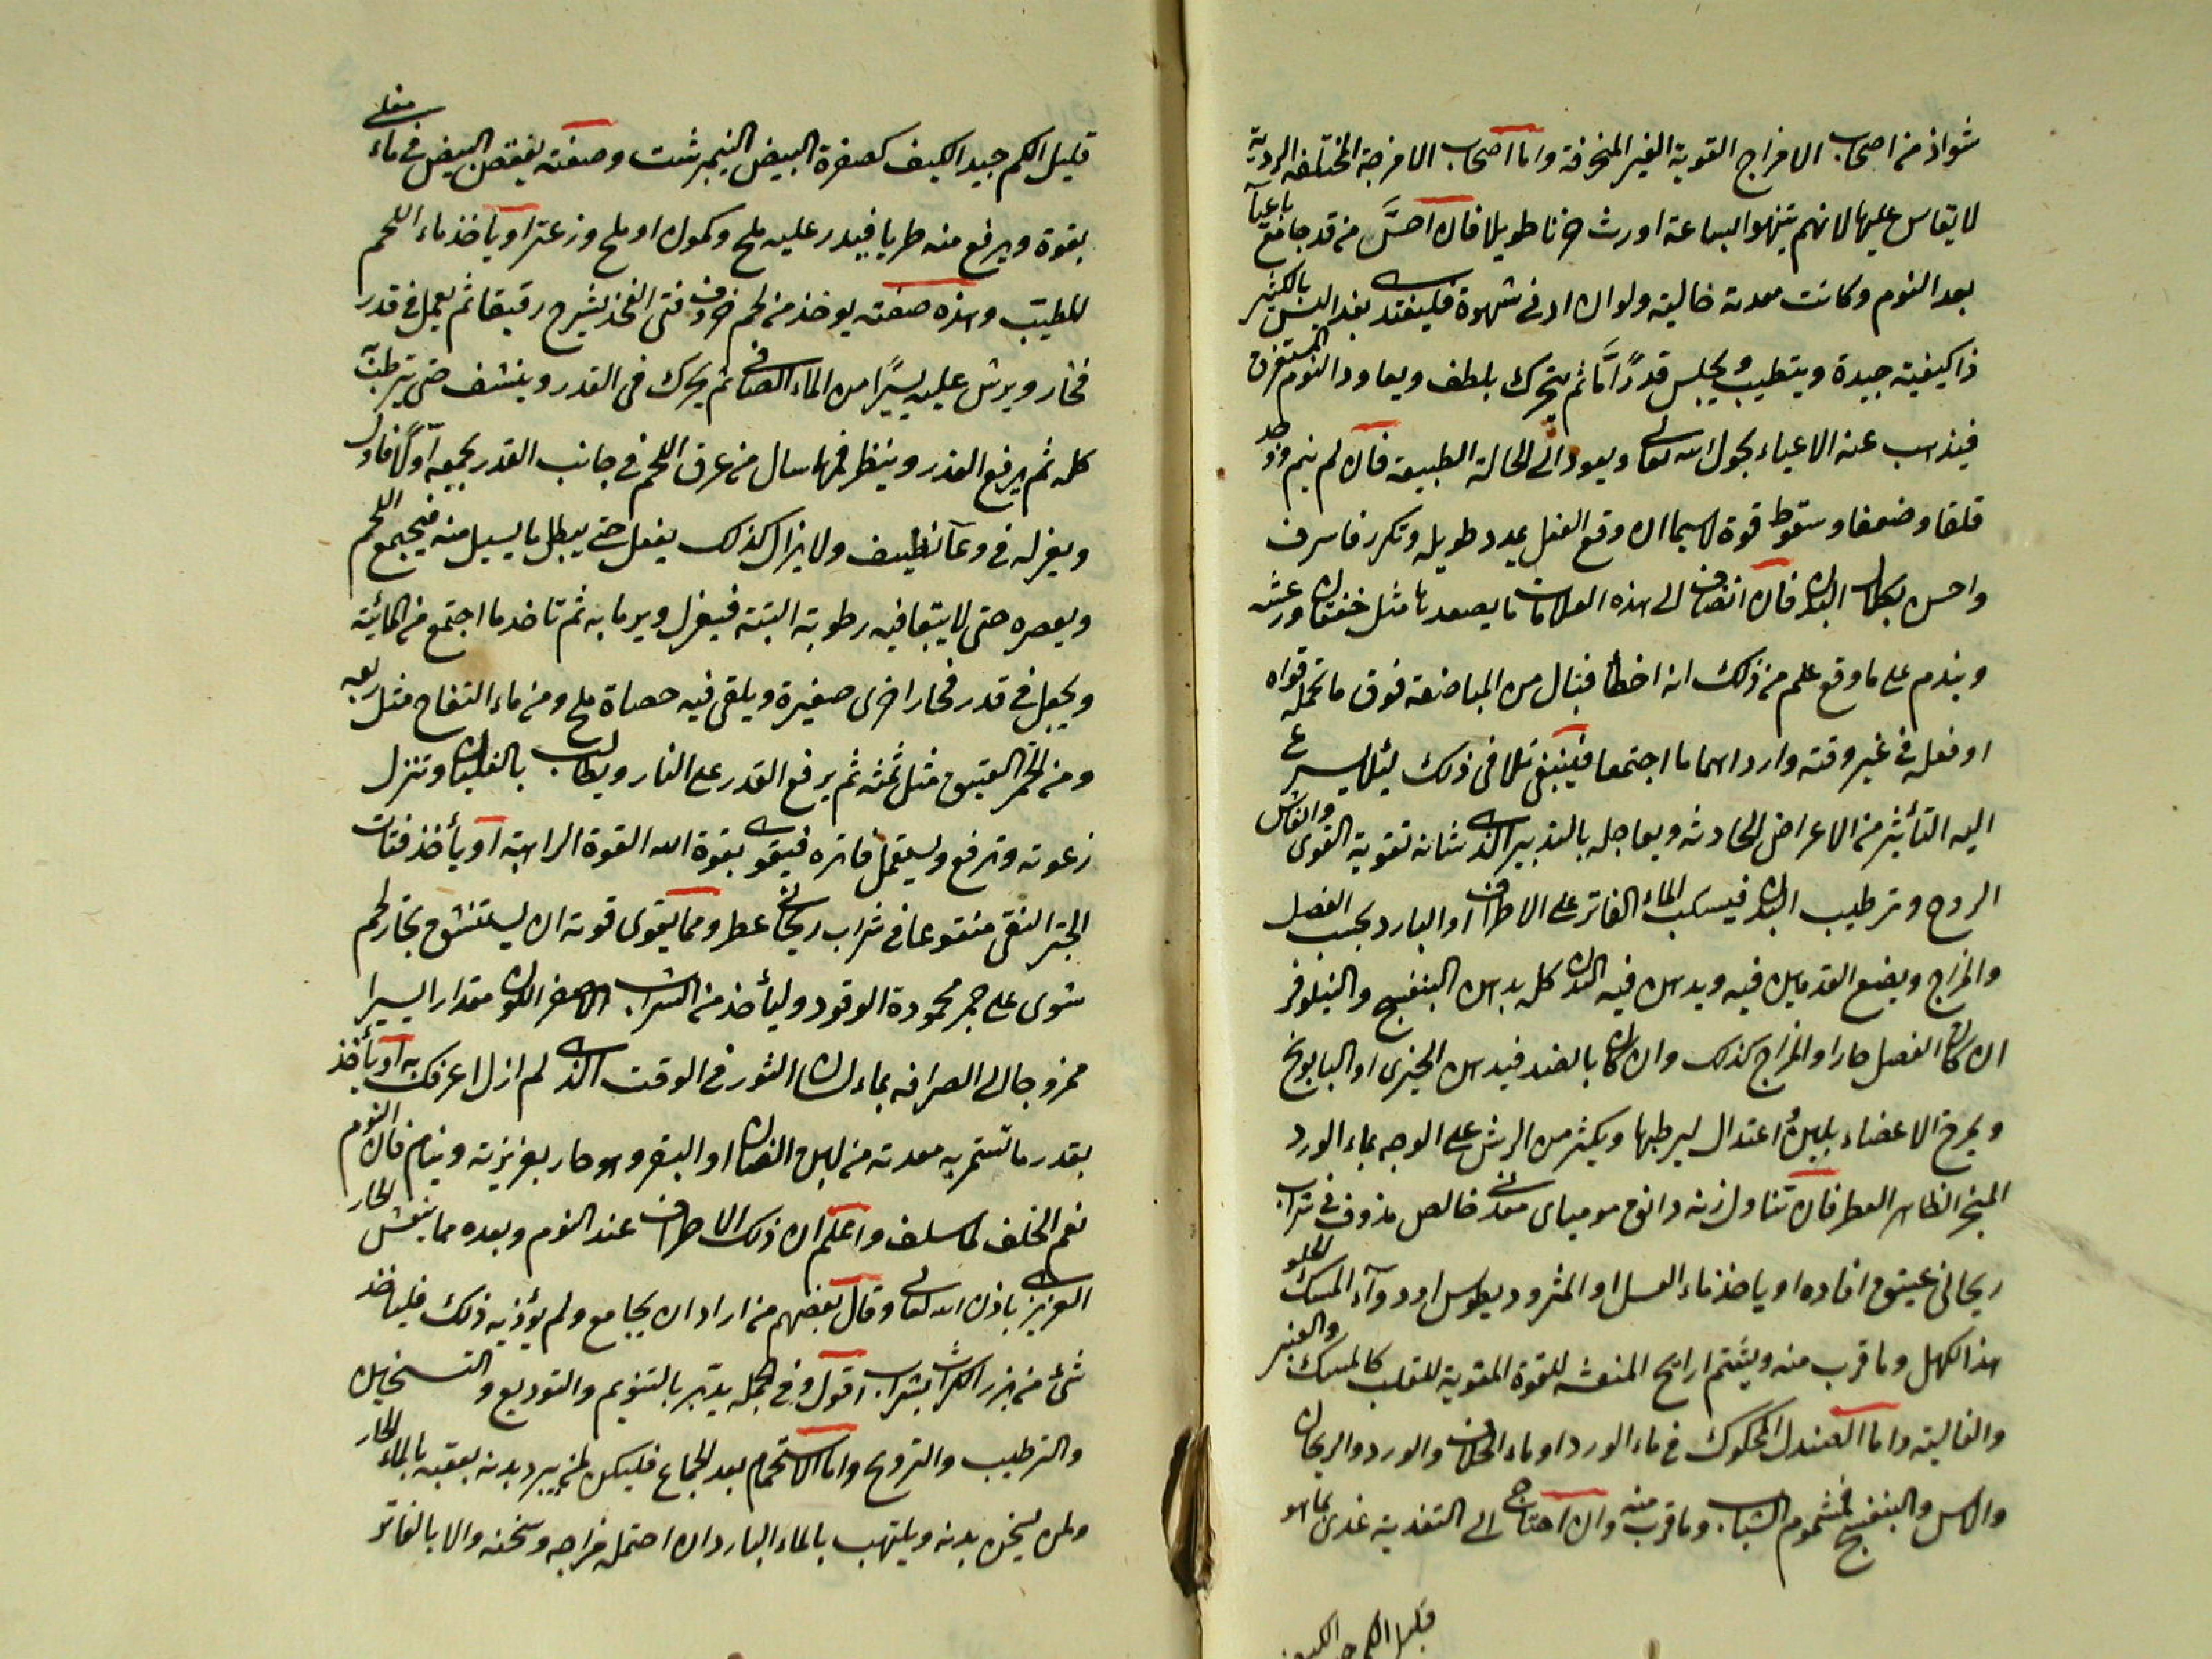 شواذ من اصحاب الامزاج القوية الغير المنحرفة واما اصحاب الامزجة المختلفة الردية
لا يقاس عليها لانهم ينهوا لساعة اورث حزنا طويلا فان احسَّ من قد جامع باعيآ
بعد النوم وكانت معدته خالية ولو ان ادنى شهوة فليغتد بغد اليس بالكثير
ذا كيفية جيدة ويتطيب ويجلس قدرًا مَّا ثم يتحرك بلطف ويعاود النوم المستغرق
فيذهب عنه الاعياء بحول الله تعالى ويعود الى الحالة الطبيعة فان لم ينم وجد
قلقا وضعفا وسقوط قوة لاسيما ان وقع الفعل بمدد طويله وتكرر فاسرف
واحس بكلال البدن فان انضاف الى هذه العلامات ما يصعدها مثل خفقان ورعشة
وندم على ما وقع علم من ذلك انه اخطأ فنال من المباضعة فوق ما تحمله قواه
او فعله في غير وقته وارداهما ما اجتمعا فينبغي تلافى ذلك لئلا يسرع
اليه التأثير من الاعراض الحادثه ويعاجله بالتدبير الذى شانه تقوية القوى وانعاش
الروح وترطيب البدن فيسكب الماء الفاتر على الاطراف او البارد بحسب الفصل
والمزاج ويضع القدمين فيه ويدهن فيه البدن كله بدهن البنفسج والنيلوفر
ان كان الفصل حارا والمزاج كذلك وان كان بالضد فيدهن الخيرى او البابونج
ويمرخ الاعضاء بلينٍ واعتدال ليرطبها ويكثر من الرش على الوجه بماء الورد
المبخر الظاهر العطر فان تناول زنة دانق موميائى معدنى خالص مذوف في شراب
ريحانى عتيق افاده او ياخذ ماء العسل او المثروديطوس او دوآء المسك الحلو
هذا الكهل وما قرب منه ويشتم ارايح المنعشه للقوة المقوية للقلب كالمسك والعنبر
والغالية واما الصندل المحكوك في ماء الورد او ماء الخلاف والورد والريحان
والاس والبنفسج فمشموم الشباب وما قرب منه وان احتاج الى التغدية غدى بما هو
قليل الكم جيد الكيف
قليل الكم جيد الكيف كصفرة البيض النيمرشت وصفته يفقص البيض في ماء مغلى
بقوة ويرفع منه طريا فيدر عليه ملح وكمون او ملح وزعتر او ياخذ ماء اللحم
المطيب وهذه صفته يوخذ من لحم خروف فتى الفخذ يشرح رقيقا ثم يعمل في قدر
فخار ويرش عليه يسيرًا من الماء الصافى ثم يحرك في القدر وينشف حتى يترطب
كله ثم يرفع القدر وينظر فمهما سال من عرق اللحم في جانب القدر يجمعه اولًا فاول
ويعزله في وعآ نظيف ولا يزال كذلك يفعل حتى يبطل ما يسيل منه فيجمع اللحم
ويعصره حتى لا يبقا فيه رطوبة البتة فيعزل ويرما به ثم تاخذ ما اجتمع من المائية
ويجعل في قدر فخار اخرى صغيرة ويلقى فيه حصاة ملح ومن ماء التفاح مثل ربعه
ومن الخمر العتيق مثل ثمنه ثم يرفع القدر على النار ويطالب بالغليان وتنزل
زعوته وترفع ويستعمل فاتره فيقوى بقوة الله القوة الراهبة او يأخذ فتات
الخبز النقى منقوعا في شراب ريحانى عطر ومما يقوى قوته ان يستنشق بخار لحم
شوى على جمر محمودة الوقود وليأخذ من الشراب الاصفر اللون مقدارا يسيرا
ممزوجا الى الصرافه بماء لسان الثور في الوقت الذى لم ازل اعرفك به او يأخذ
بقدر ما تستمريه معدته من لبن الضان او البقر وهو حار بغريزته وينام فان النوم
نعم الخلف لما سلف واعلم ان ذلك الاطراف عند النوم وبعده مما ينعش الحار
الغريزى باذن الله تعالى وقال بعضهم من اراد ان يجامع ولم يؤذيه ذلك فلياخذ
شئ من بزر الكراث بشراب اقول وفي الجملة يدبّر بالتنويم والتوديع والتسخين
والترطيب والترويح واما الاستحمام بعد الجماع فليكن لمن يبرد بدنه بعقبه بالماء الحار
ولمن يسخن بدنه ويلتهب بالماء البارد ان احتمله مزاجه وسخنه والا بالفاتر